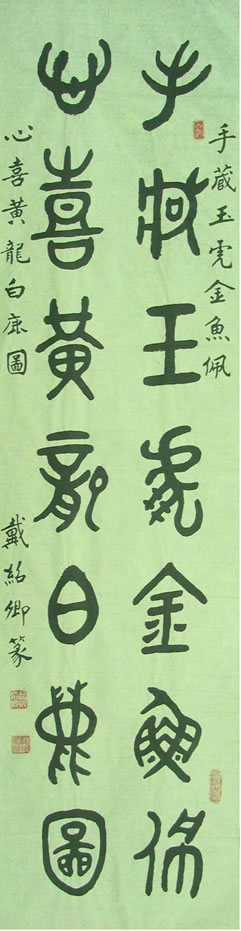 手藏玉虎金魚佩
手藏玉虎金魚佩
心喜黃龍白鹿圖
心喜黃龍白鹿圖
戴紹卿篆